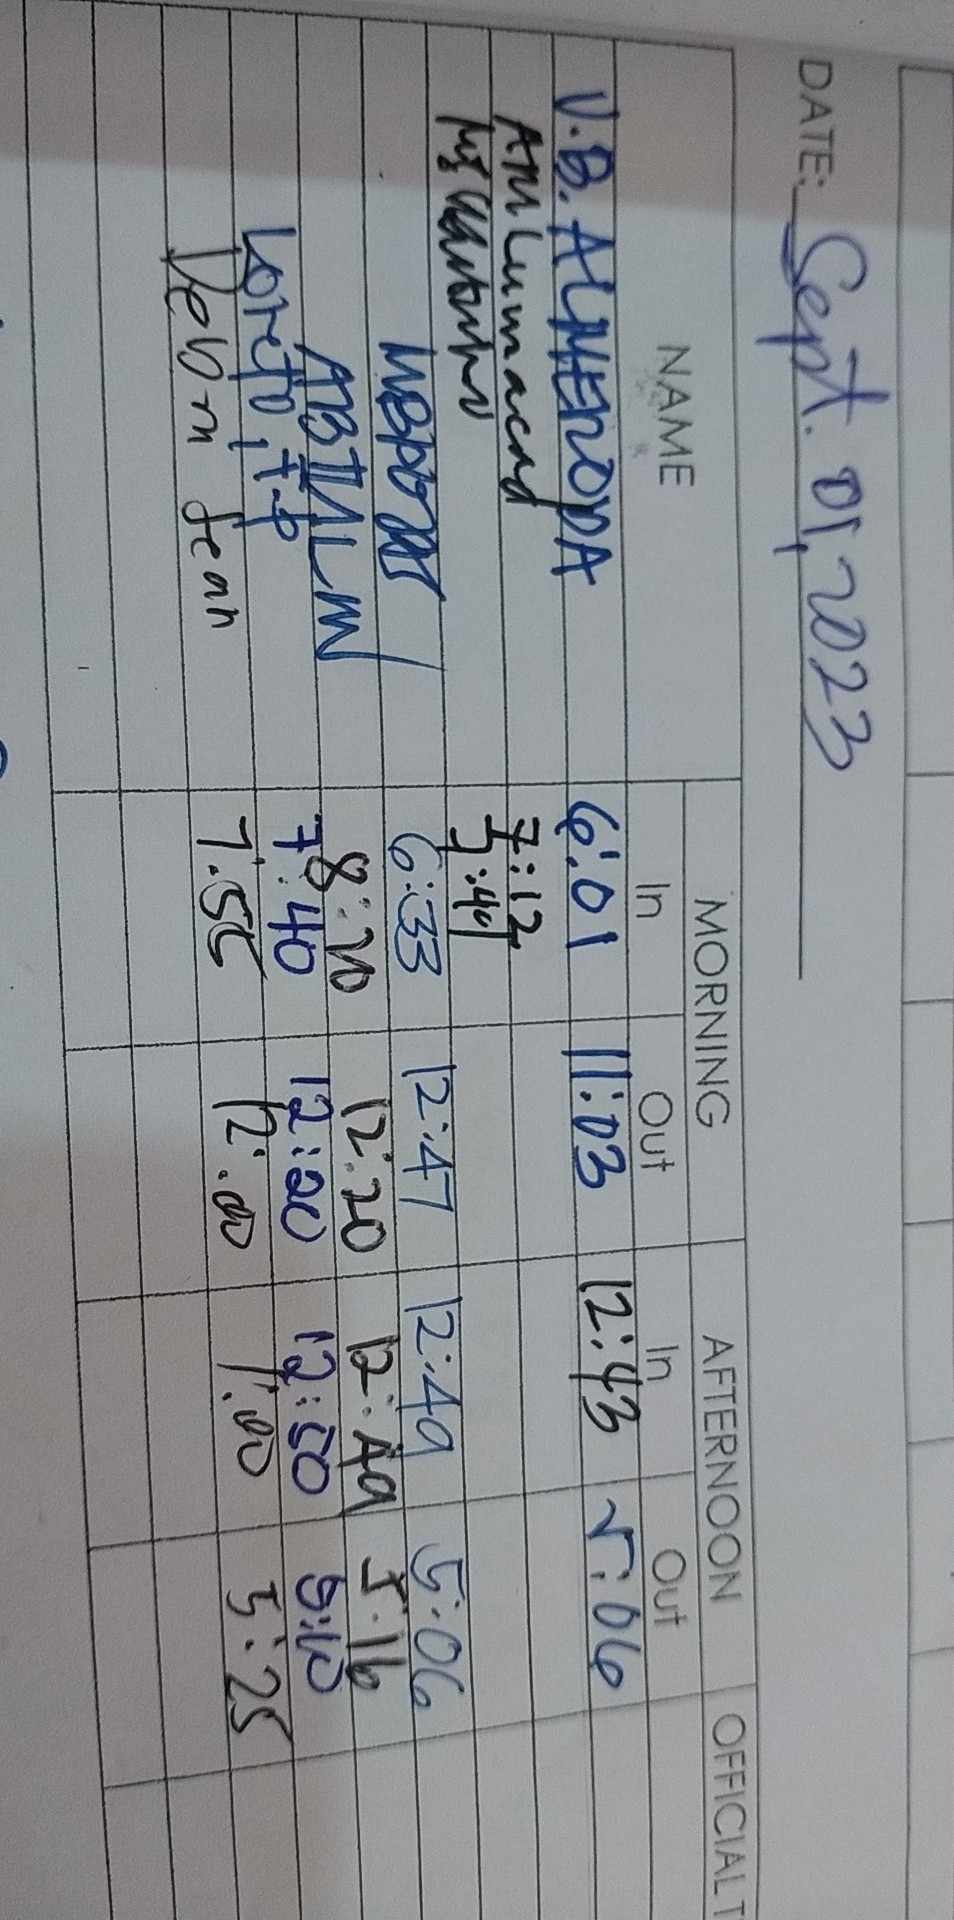 DATE: Sept. 01, 2023
NAME MORNING AFTERNOON OFFICIAL T
In Out In Out
V.B. ALMENODA 6:01 11:03 12:43 5:06
AM Lumacad 7:12
7:49
6:33 12:47 12:49 5:06
8:20 12:20 12:49 5:16
Loreto, t-p 7:40 12:20 12:50 5:10
Debon Jean 7:55 12:00 1:00 5:25